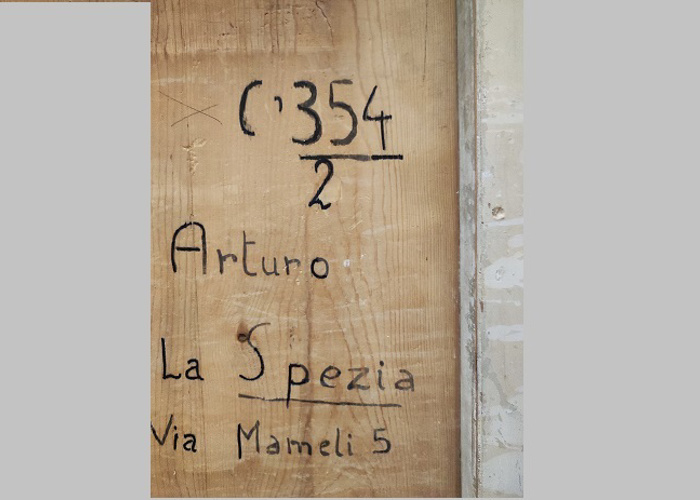 C'354
2
Arturo
La Spezia
Via Mameli 5